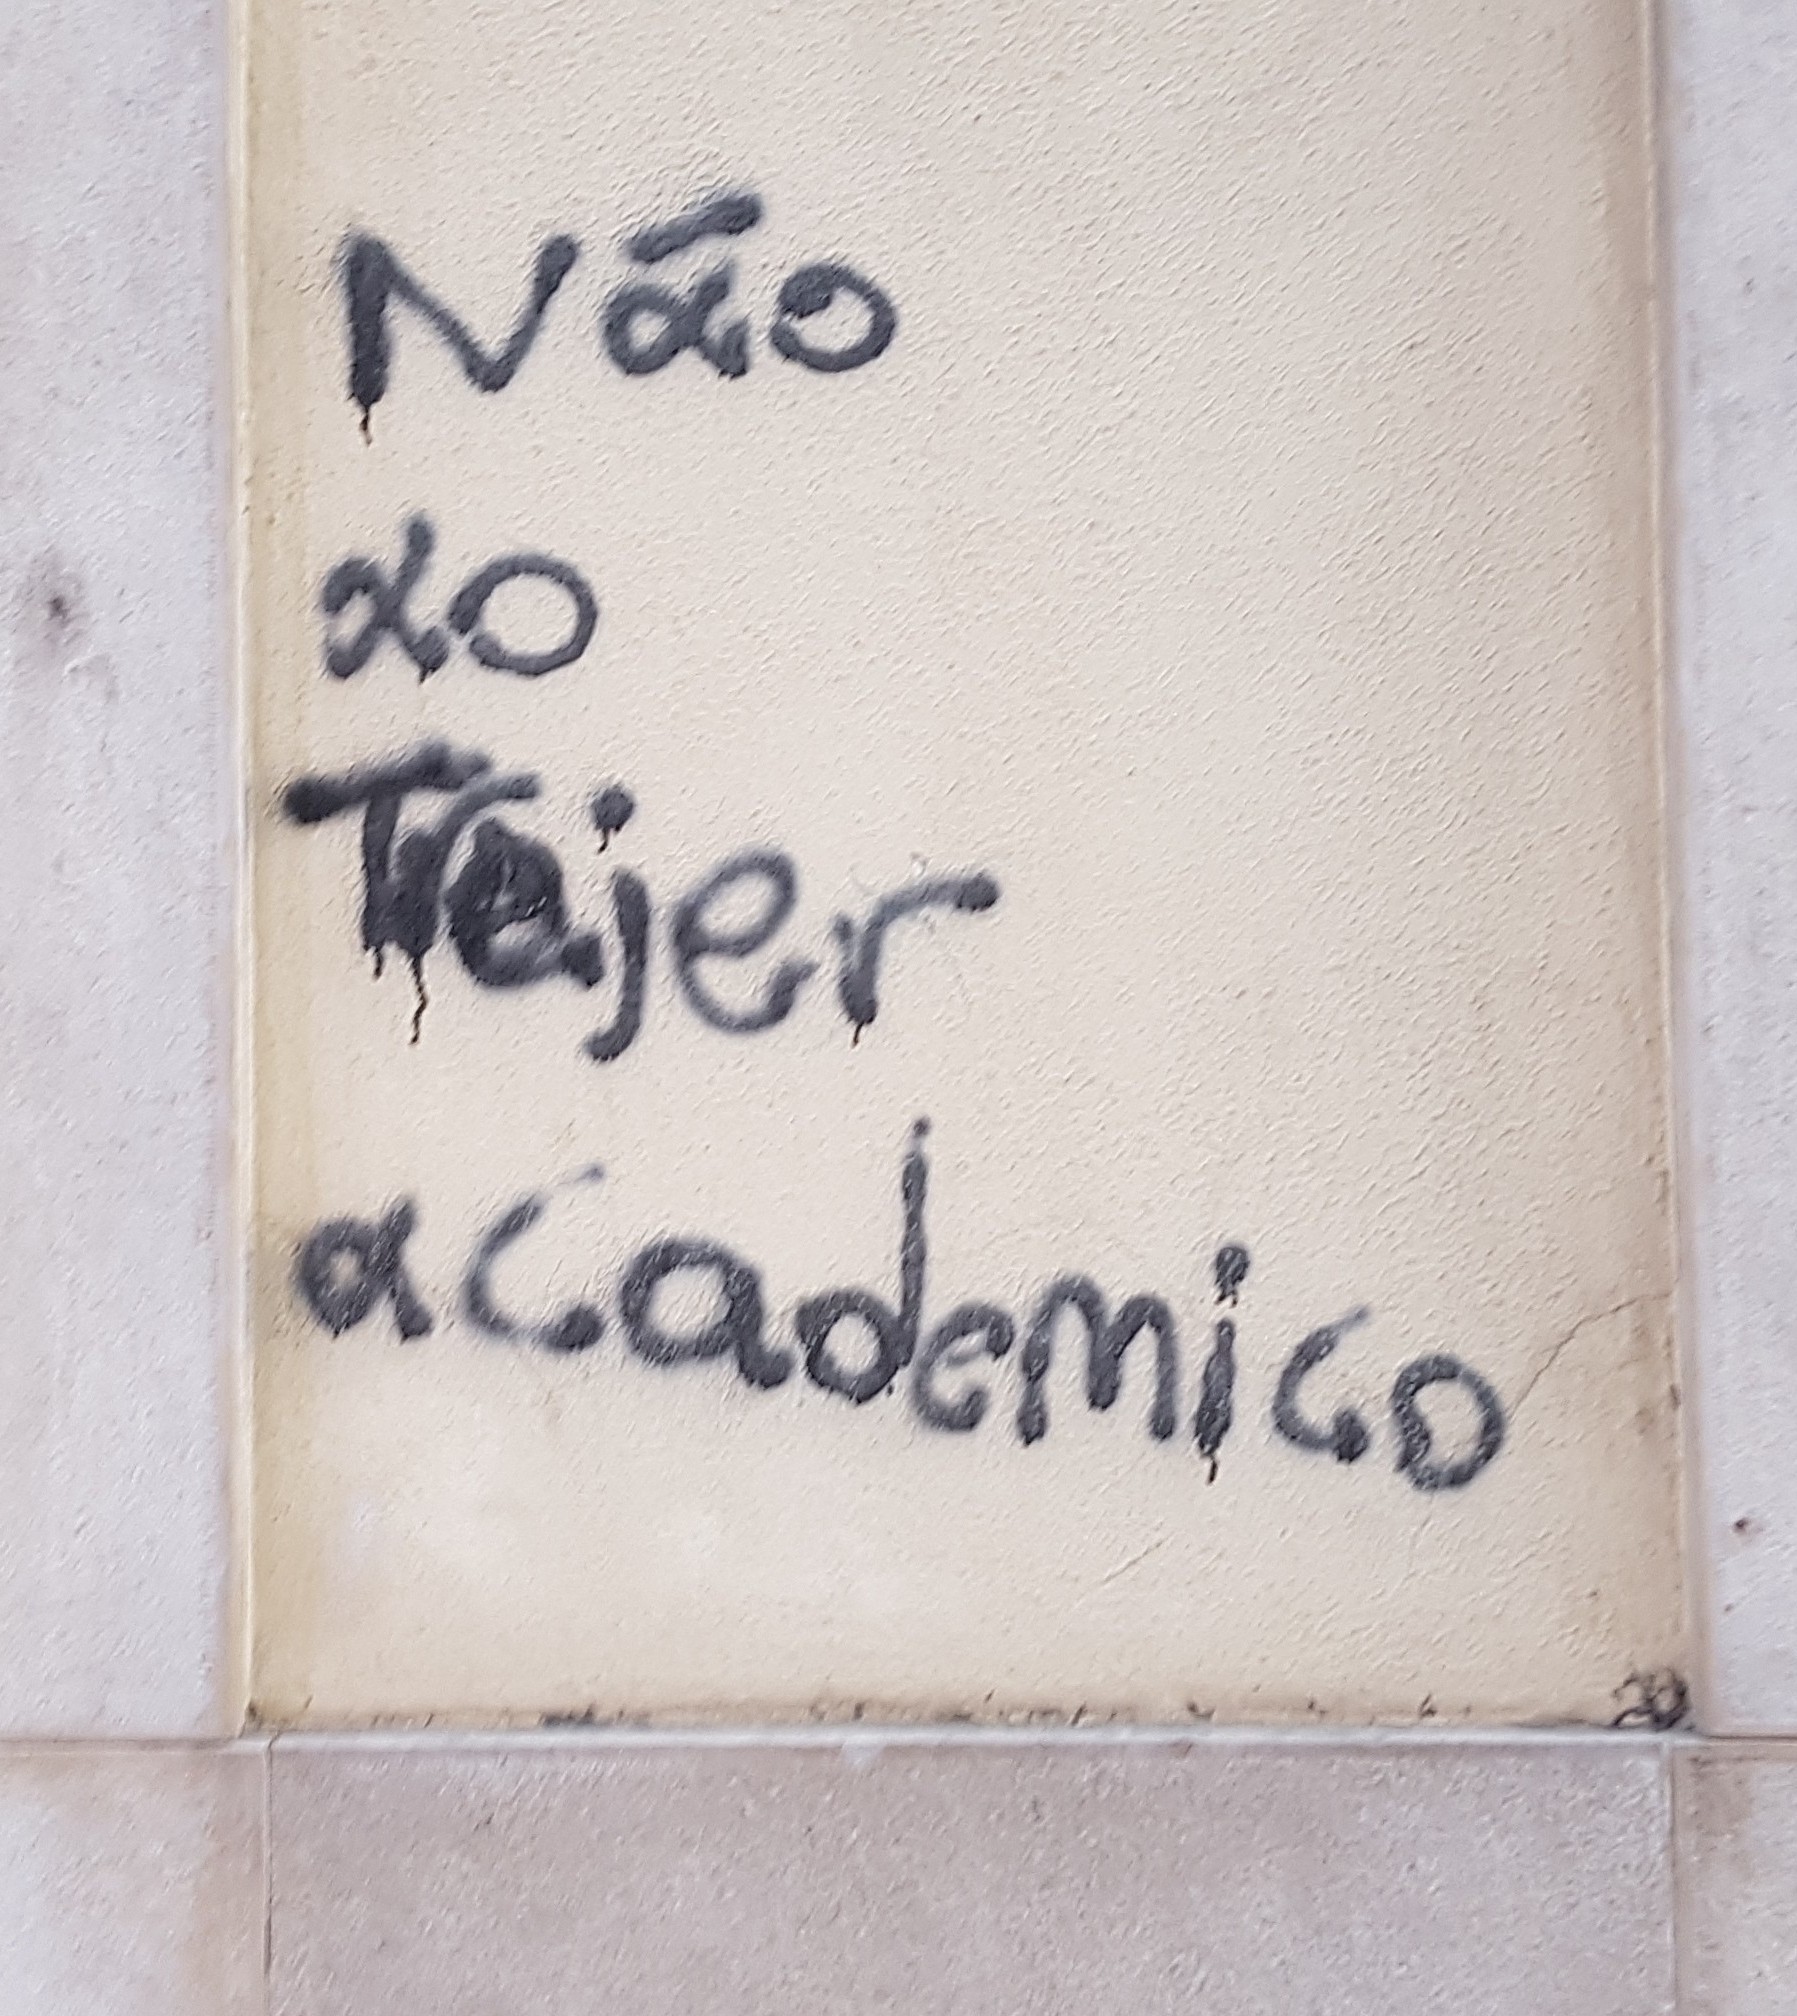 Não
ao
Tajer
academico